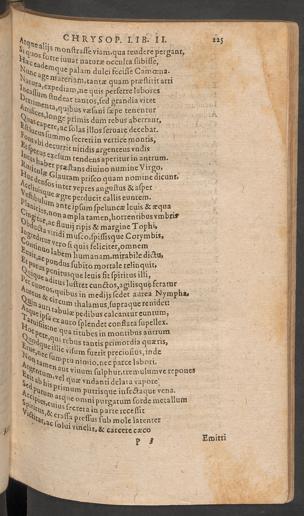 CHRYSOP. LIB. II. 225
Atque alijs monstrasse viam, qua tendere pergant,
Si quos forte iuuat naturæ occulta subisse,
Hac eademque palam dulci fecisse Camœna.
Nunc age materiam, tantæ quam præstitit arti
Natura, expediam, ne quis perferre labores
Incassum studeat tantos, sed grandia vitet
Detrimenta, quibus væsani sæpe tenentur
longe primis dum rebus aberrant,
capere, ac solas illos seruare decebat.
summo secreti in vertice montis,
decurrit nitidis argenteus vndis
exesum tendens aperitur in antrum.
haber præstans diuino numine Virgo,
Glauram prisco quam nomine dicunt.
densos inter vepres angustus & asper
Accliuisque ægre perducit callis euntem.
Vestibulum ante ipsum speluncæ leuis & æqua
Planities, non ampla tamen, horrentibus vmbris
Cingitur, ac fluuij ripis & margine Tophi,
Obducta viridi musco, spissisque Corymbis,
Ingreditur vero si quis feliciter, omnem
Continuo labem humanam, mirabile dictu,
Exuit, ac pondus subito mortale relinquit,
Et purus penitusque leuis sit spiritus illi,
Quique aditus lustret cunctos, agilisque feratur
Per cuneos, quibus in medijs sedet aurea Nympha,
Aureus & circum thalamus, supraque renident
Quin auri tabulæ pedibus calcantur euntum,
Atque ipsa ex auro splendet constrata supellex.
Tantisne qua titubes in montibus antrum
Hoc pete, qui rebus tantis primordia quæris,
Quodque illic visum fuerit preciosius, inde
Erue, nec sumptu nimio, nec parce labori.
Non tamen aut viuum sulphur, tremulumve repones
Argentum, vel quæ vndanti delata vapore
ab his primum putrisque infectaque vena.
Sed purum atque omni purgatum sorde metallum
Accipies, cuius secreta in parte recessit
Spiritus, & crassa pressus sub mole latenter
ac solui vinclis, & carcere cæco
P 3 Emitti